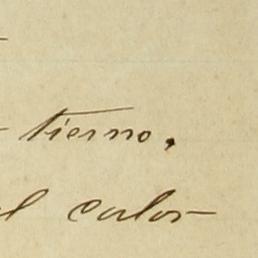 tierno.
el color